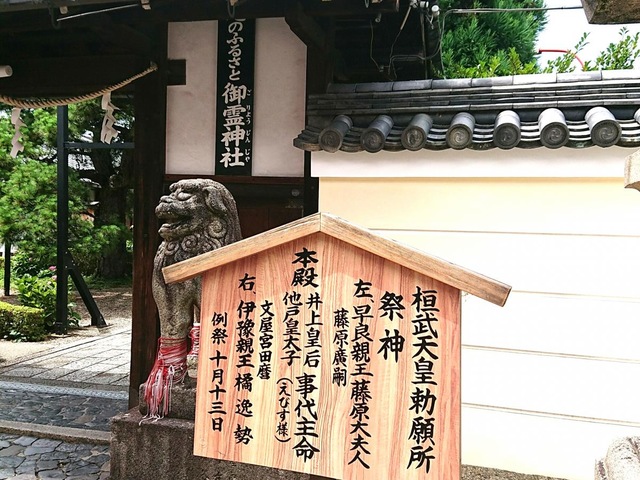 のふるさと 御霊神社
ごりょうじんじゃ
桓武天皇勅願所
祭神
左、早良親王 藤原大夫人
藤原廣嗣
本殿 井上皇后 事代主命
他戸皇太子 (えびす様)
文屋宮田麿
右、伊豫親王 橘逸勢
例祭 十月十三日